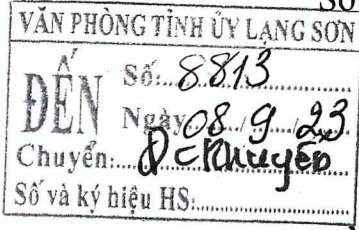 VĂN PHÒNG TỈNH ỦY LẠNG SƠN
ĐẾN
Số: 8813
Ngày 08/9/23
Chuyển: Đ/c Khuyến
Số và ký hiệu HS: